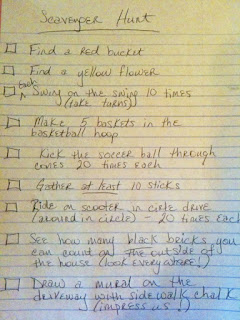 Scavenger Hunt
Find a red bucket
Find a yellow flower
Each
Swing on the swing 10 times
(take turns)
Make 5 baskets in the
basketball hoop
Kick the soccer ball through
cones 20 times each
Gather at least 10 sticks
Ride on scooter in circle drive
(around in circle) - 20 times each
See how many black bricks you
can count on the outside of
the house (look everywhere!)
Draw a mural on the
driveway with sidewalk chalk
(impress us!)